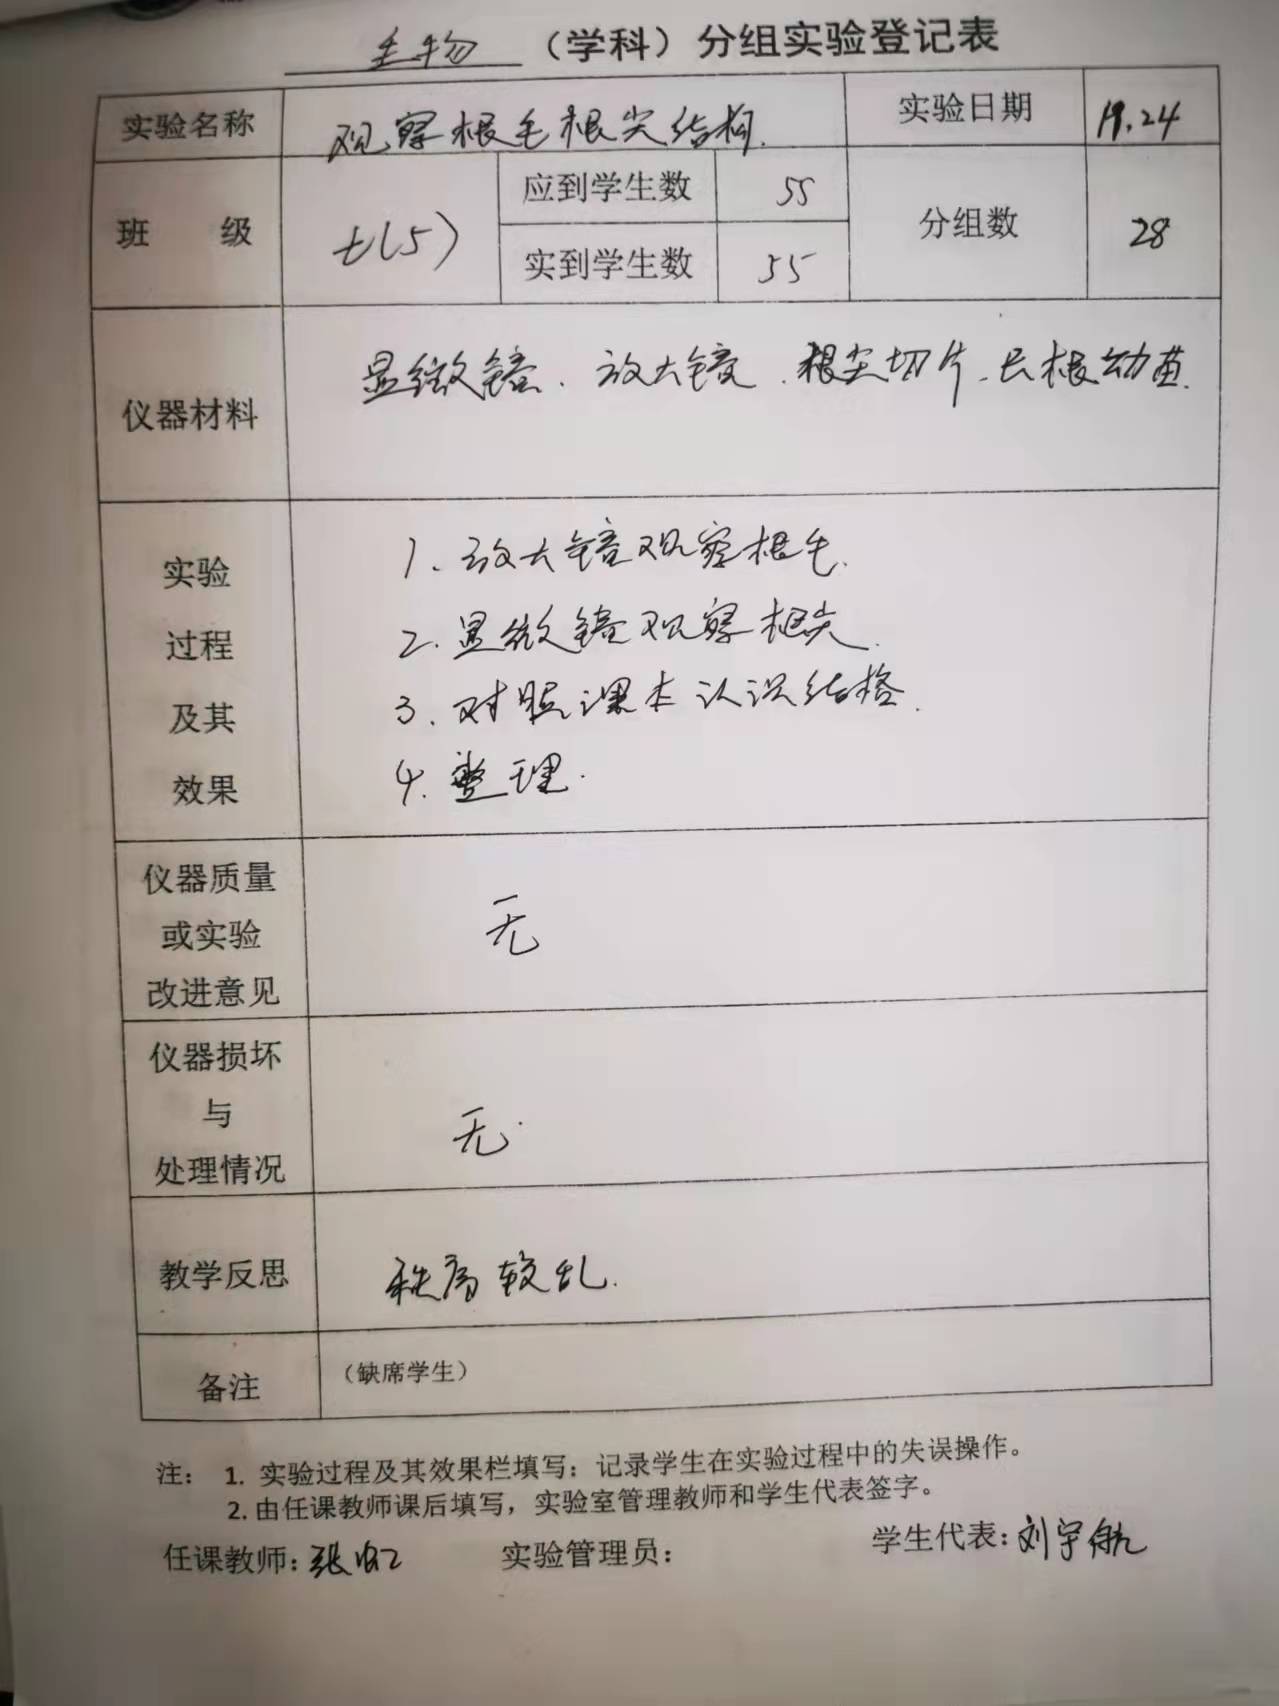 生物 （学科）分组实验登记表
实验名称 观察根毛根尖结构. 实验日期 19.24
班 级 七(5) 应到学生数 55 分组数 28
实到学生数 55
仪器材料 显微镜、放大镜、根尖切片、长根幼苗.
实验
过程
及其
效果
1. 放大镜观察根毛.
2. 显微镜观察根尖.
3. 对照课本认识结构.
4. 整理.
仪器质量
或实验
改进意见
无
仪器损坏
与
处理情况
无.
教学反思 秩序较乱.
备注 （缺席学生）
注： 1. 实验过程及其效果栏填写：记录学生在实验过程中的失误操作。
2. 由任课教师课后填写，实验室管理教师和学生代表签字。
任课教师：张虹 实验管理员： 学生代表：刘宇航